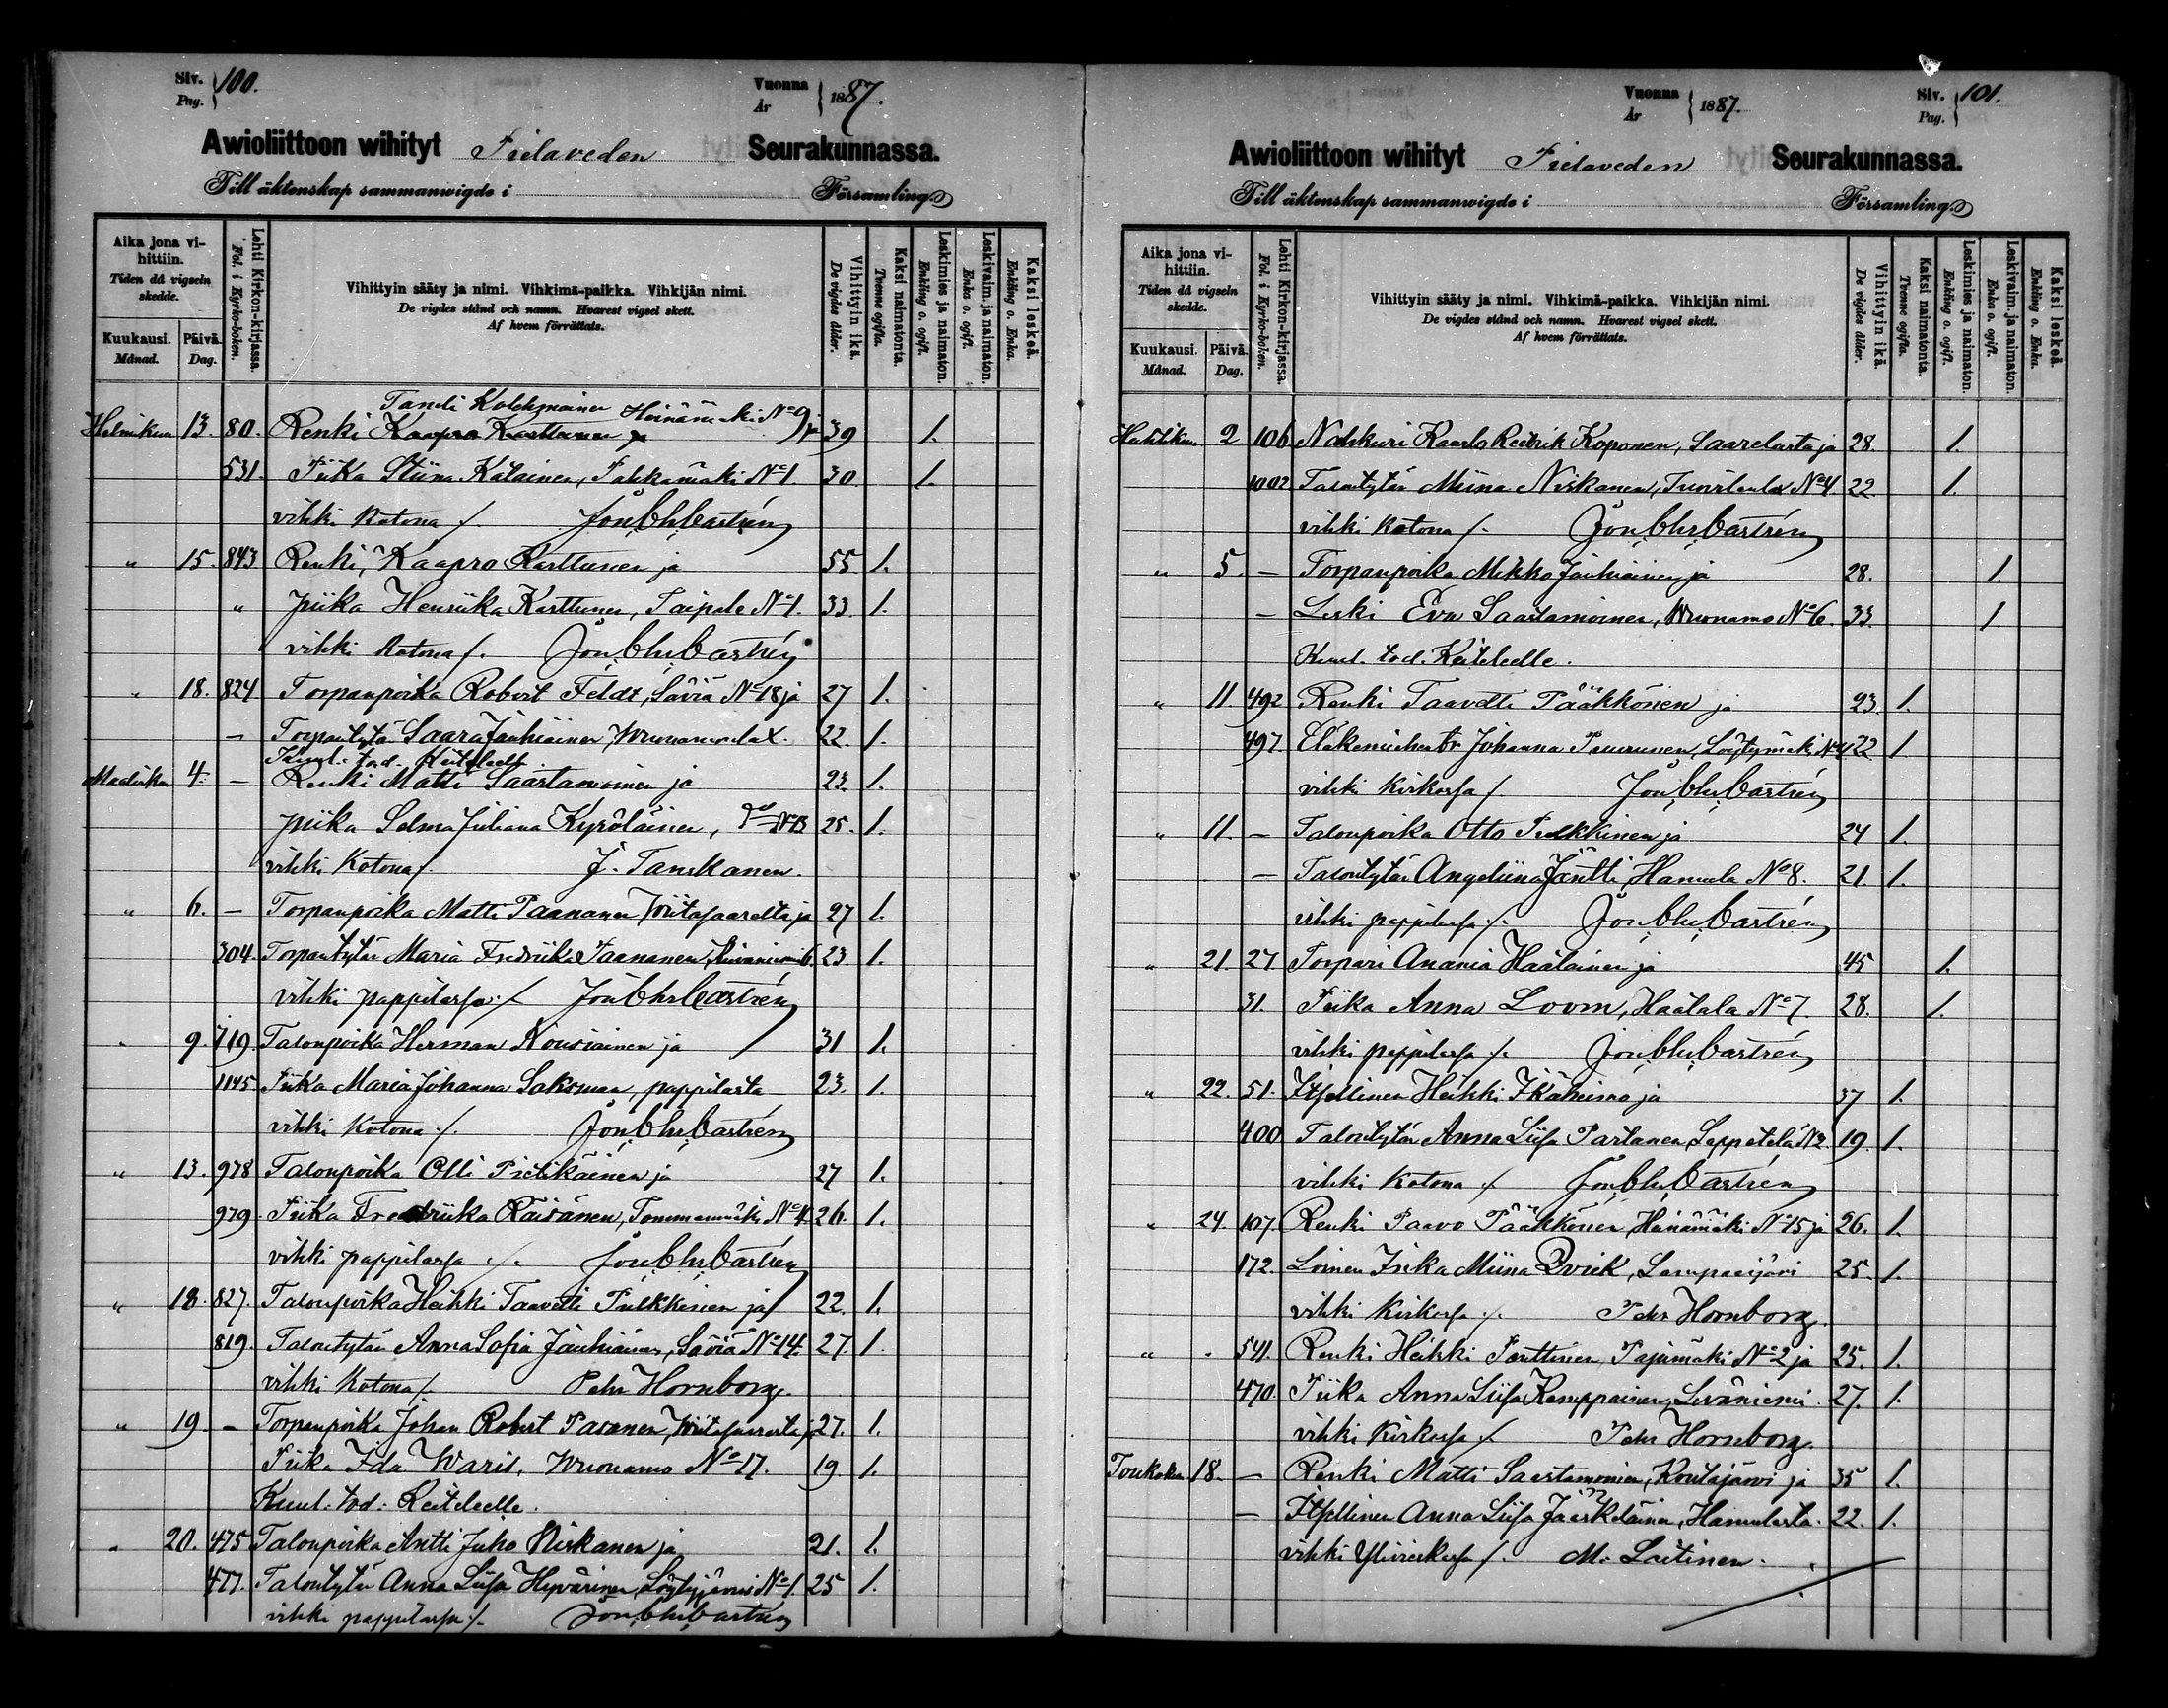 Siv. Pag. 100.
Vuonna År 1887.
Awioliittoon wihityt Pielaveden Seurakunnassa.
Till äktenskap sammanwigde i Församling.
Aika jona vihittiin. Tiden då vigseln skedde.
Kuukausi. Månad.
Päivä. Dag.
Lehti Kirkon-kirjassa. Fol. i Kyrko-boken.
Vihittyin sääty ja nimi. Vihkimä-paikka. Vihkijän nimi.
De vigdes stånd och namn. Hvarest vigsel skett.
Af hvem förrättats.
Vihittyin ikä. De vigdes ålder.
Kaksi naimatonta. Tvenne ogifta.
Leskimies ja naimaton. Enkling o. ogift.
Leskivaim. ja naimaton. Enka o. ogift.
Kaksi leskeä. Enkling o. Enka.
Heinämäki No 9 ja
Helmikuu 13. 80. Renki Kaapro Karttunen ja 39 1.
531. Piika Stiina Käläinen, Pakkamäki No 1. 30. 1.
vihki kotona ./. Joh. Chr. Castrén
" 15. 843 Renki, Kaapro Karttunen ja 55. 1.
" piika Henriika Karttunen, Taipale No 1. 33. 1.
vihki kotona ./. Joh. Chr. Castrén
" 18. 824 Torpanpoika Robert Feldt, Säviä No 18 ja 27 1.
– Torpantytär Saara Jauhiainen, Wuonamolax. 22. 1.
Kuul. tod. Keiteleelle
Maalisku 4. – Renki Matti Saastamoinen ja 23. 1.
piika Selma Juliana Kyröläinen, No 13 25. 1.
vihki kotona ./. J. Tanskanen.
" 6. – Torpanpoika Matti Paananen Wiitasaarelta ja 27 1.
304. Torpantytär Maria Fredriika Paananen, 6. 23. 1.
vihki pappilassa ./. Joh. Chr. Castrén
" 9. 719. Talonpoika Herman Nousiainen ja 31 1.
1145 Piika Maria Johanna Saksman, pappilasta 23. 1.
vihki kotona ./. Joh. Chr. Castrén
" 13. 978 Talonpoika Olli Pietikäinen ja 27 1.
979. Piika Fredriika Räisänen, Tommonmäki No 4. 26. 1.
vihki pappilassa ./. Joh. Chr. Castrén
" 18. 827. Talonpoika Heikki Taavetti Pulkkinen ja 22. 1.
819. Talontytär Anna Sofia Jauhiainen, Säviä No 14. 27. 1.
vihki kotona ./. Petr Hornborg.
" 19 – Torpanpoika Johan Robert Pasanen, Wiitasaarelta ja 27. 1.
Piika Ida Waris, Wuonamo No 17. 19 1.
Kuul. tod. Keiteleelle.
" 20. 475 Talonpoika Antti Juho Niskanen ja 21. 1.
477. Talontytär Anna Liisa Hyvärinen, Löytyjärvi No 1. 25 1.
vihki pappilassa ./. Joh. Chr. Castrén
Vuonna År 1887.
Siv. Pag. 101.
Awioliittoon wihityt Pielaveden Seurakunnassa.
Till äktenskap sammanwigde i Församling.
Aika jona vihittiin. Tiden då vigseln skedde.
Kuukausi. Månad.
Päivä. Dag.
Lehti Kirkon-kirjassa. Fol. i Kyrko-boken.
Vihittyin sääty ja nimi. Vihkimä-paikka. Vihkijän nimi.
De vigdes stånd och namn. Hvarest vigsel skett.
Af hvem förrättats.
Vihittyin ikä. De vigdes ålder.
Kaksi naimatonta. Tvenne ogifta.
Leskimies ja naimaton. Enkling o. ogift.
Leskivaim. ja naimaton. Enka o. ogift.
Kaksi leskeä. Enkling o. Enka.
Huhtiku 2 106 Nahkuri Kaarlo Reidrik Koponen, Saarelasta ja 28. 1.
1002. Talontytär Miina Niskanen, No 4 22. 1.
vihki kotona ./. Joh. Chr. Castrén
" 5. – Torpanpoika Mikko Jauhiainen ja 28. 1.
– Leski Eva Saastamoinen, Wuonamo No 6. 33. 1.
Kuul. tod. Keiteleelle.
" 11 492 Renki Taavetti Pääkkönen ja 23. 1.
497. Eläkemiehen tr Johanna Puurunen, Löytymäki No 4 22 1.
vihki kirkossa ./. Joh. Chr. Castrén
" 11. – Talonpoika Otto Pulkkinen ja 24 1.
– Talontytär Angeliina Jäntti, Hamula No 8. 21. 1.
vihki pappilassa ./. Joh. Chr. Castrén
" 21. 27 Torpari Anania Haatainen ja 45 1.
31. Piika Anna Loom, Haatala No 7. 28. 1.
vihki pappilassa ./. Joh. Chr. Castrén
" 22. 51. Itsellinen Heikki Ikäheimo ja 37 1.
400 Talontytär Anna Liisa Partanen, Leppätelä No 2. 19. 1.
vihki kotona ./. Joh. Chr. Castrén
" 24. 107. Renki Paavo Pääkkönen, Heinämäki No 15 ja 26. 1.
172. Loinen Piika Miina Qvick, Lampaanjärvi 25. 1.
vihki kirkossa ./. Petr Hornborg.
" " 541. Renki Heikki Penttinen, Pajumäki No 2 ja 25. 1.
470. Piika Anna Liisa Kamppainen, Leväniemi. 27. 1.
vihki kirkossa ./. Petr Hornborg.
Toukoku 18. – Renki Matti Saastamoinen, Koutajärvi ja 35 1.
– Itsellinen Anna Liisa Jääskeläinen, Hamulasta. 22. 1.
vihki Ylivieskassa ./. M. Laitinen.